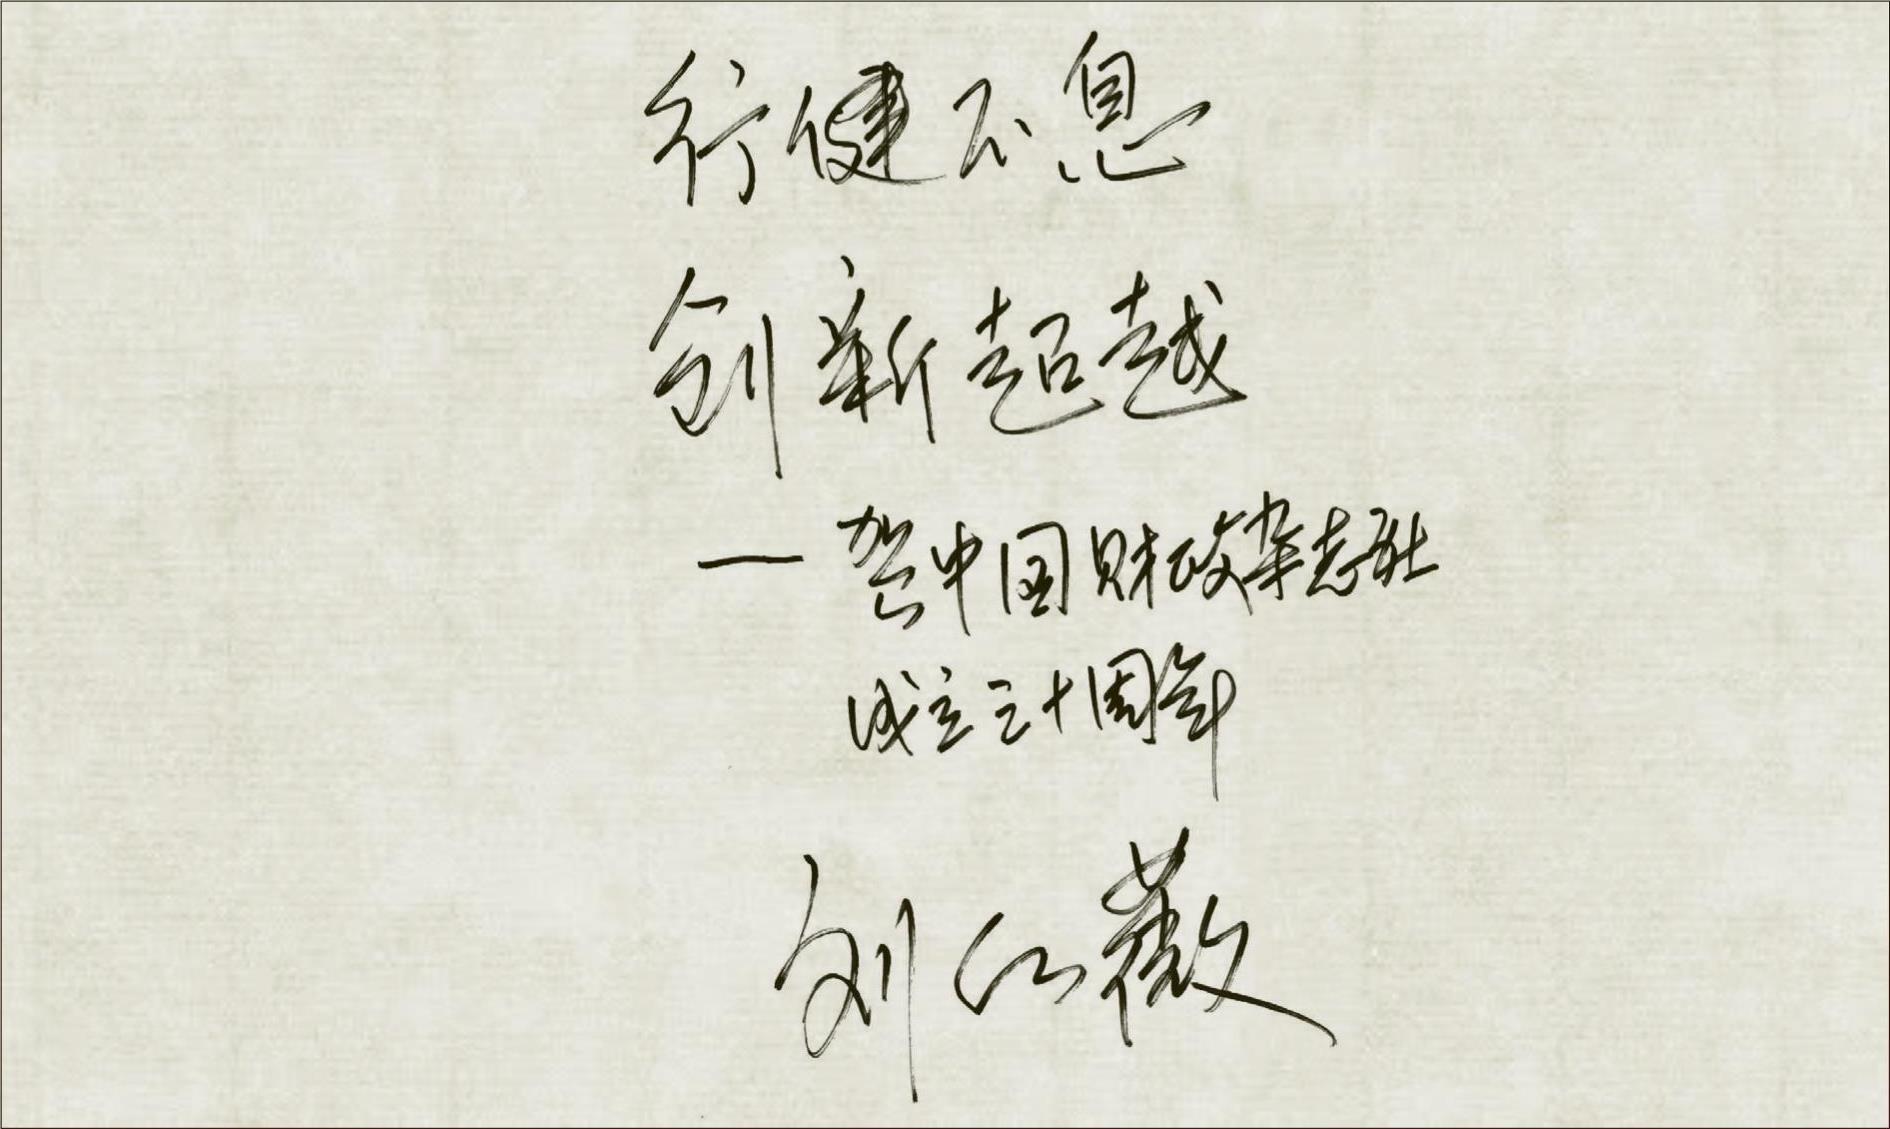 行健不息
创新超越
—贺中国财政杂志社
成立三十周年
刘红薇